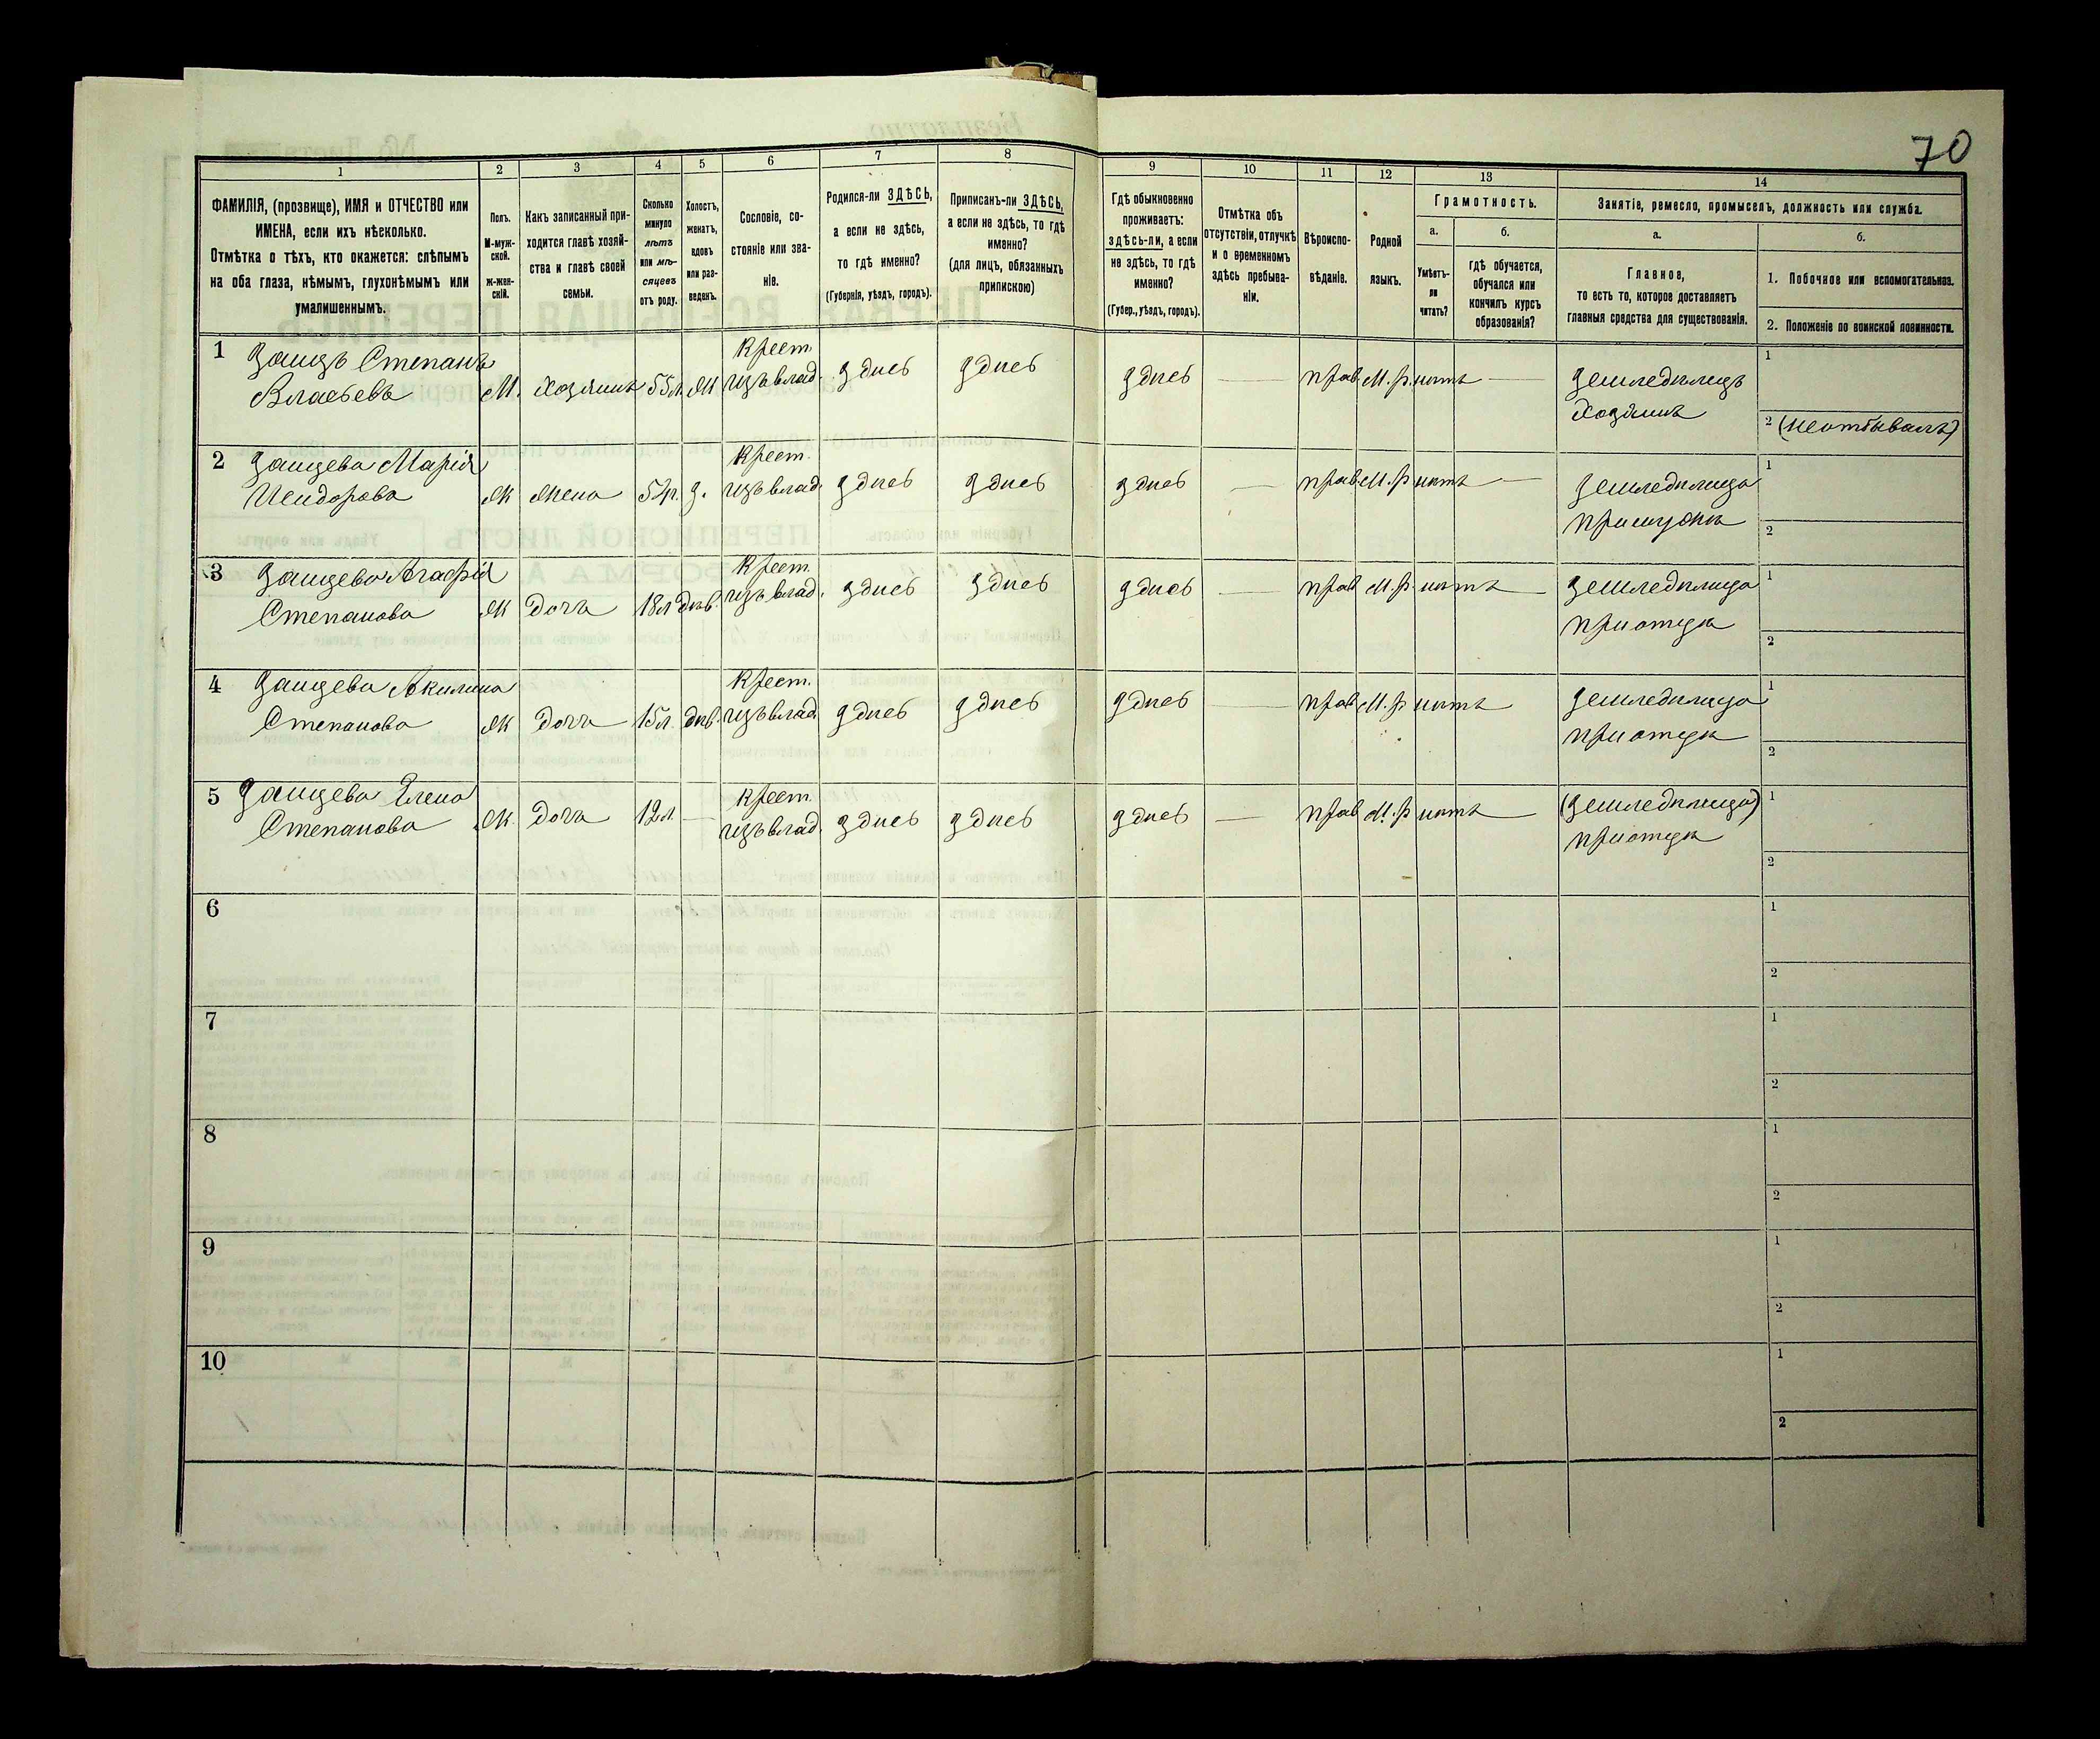 70
1 2 3 4 5 6 7 8 9 10 11 12 13 14
ФАМИЛІЯ, (прозвище), ИМЯ и ОТЧЕСТВО или
ИМЕНА, если ихъ нѣсколько.
Отмѣтка о тѣхъ, кто окажется: слѣпымъ
на оба глаза, нѣмымъ, глухонѣмымъ или
умалишеннымъ.
Полъ.
М-муж-
ской.
ж-жен-
скій.
Какъ записанный при-
ходится главѣ хозяй-
ства и главѣ своей
семьи.
Сколько
минуло
лѣтъ
или мѣ-
сяцевъ
отъ роду.
Холостъ,
женатъ,
вдовъ
или раз-
веденъ.
Сословіе, со-
стояніе или зва-
ніе.
Родился-ли ЗДѢСЬ,
а если не здѣсь,
то гдѣ именно?
(Губернія, уѣздъ, городъ).
Приписанъ-ли ЗДѢСЬ,
а если не здѣсь, то гдѣ
именно?
(для лицъ, обязанныхъ
припискою)
Гдѣ обыкновенно
проживаетъ:
здѣсь-ли, а если
не здѣсь, то гдѣ
именно?
(Губер., уѣздъ, городъ).
Отмѣтка объ
отсутствіи, отлучкѣ
и о временномъ
здѣсь пребыва-
ніи.
Вѣроиспо-
вѣданіе.
Родной
языкъ.
Грамотность.
а.
Умѣетъ-
ли
читать?
б.
Гдѣ обучается,
обучался или
кончилъ курсъ
образованія?
Занятіе, ремесло, промыселъ, должность или служба.
а.
Главное,
то есть то, которое доставляетъ
главныя средства для существованія.
б.
1. Побочное или вспомогательное.
2. Положеніе по воинской повинности.
1 Заицъ Степанъ
Власьевъ М. Хозяинъ 55 л. Ж Крест.
изъ влад. здѣсь здѣсь здѣсь — прав. М.р. нѣтъ — Земледѣлецъ
Хозяинъ
1
2 (неотбывалъ)
2 Заицева Марія
Исидорова Ж Жена з. Крест.
изъ влад. здѣсь здѣсь здѣсь — прав. М.р. нѣтъ — Земледѣлица
при мужѣ
1
2
3 Заицева Агафія
Степанова Ж Дочь 18 л дѣв. Крест.
изъ влад. здѣсь здѣсь здѣсь — прав М.р нѣтъ — Земледѣлица
при отцѣ
1
2
4 Заицева Акилина
Степанова Ж Дочь 15 л. дѣв. Крест.
изъ влад здѣсь здѣсь здѣсь — прав М.р нѣтъ Земледѣлица
при отцѣ
1
2
5 Заицева Елена
Степанова Ж. Дочь 12 л. — Крест.
изъ влад. здѣсь здѣсь здѣсь — прав М.р нѣтъ (Земледѣлица)
при отцѣ
1
2
6
1
2
7
1
2
8
1
2
9
1
2
10
1
2